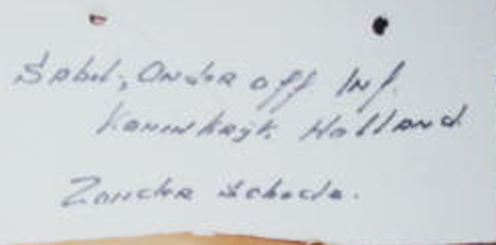 Sabel, Onder off Inf.
Koninkrijk Holland
Zonder schede.